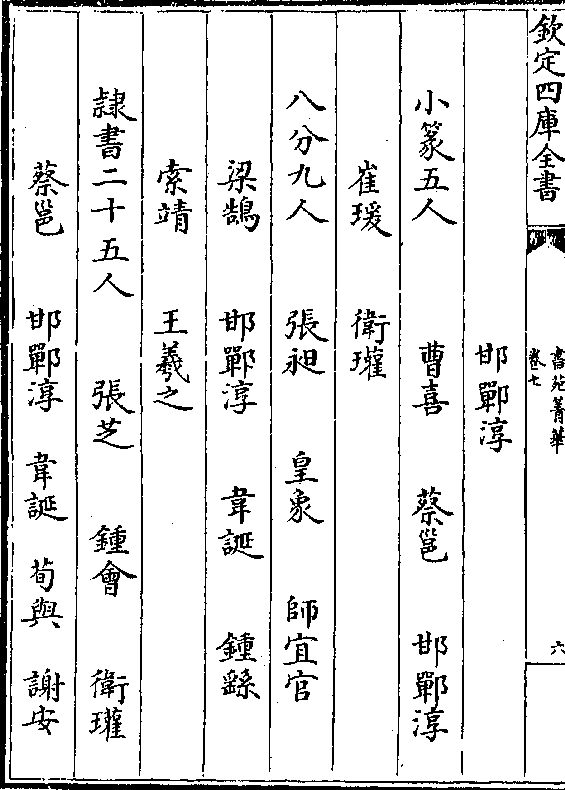 欽定四庫全書
書苑菁華
卷七
六
邯鄲淳
小篆五人 曹喜 蔡邕 邯鄲淳
崔瑗 衛瓘
八分九人 張昶 皇象 師宜官
梁鵠 邯鄲淳 韋誕 鍾繇
索靖 王羲之
隷書二十五人 張芝 鍾會 衛瓘
蔡邕 邯鄲淳 韋誕 荀輿 謝安